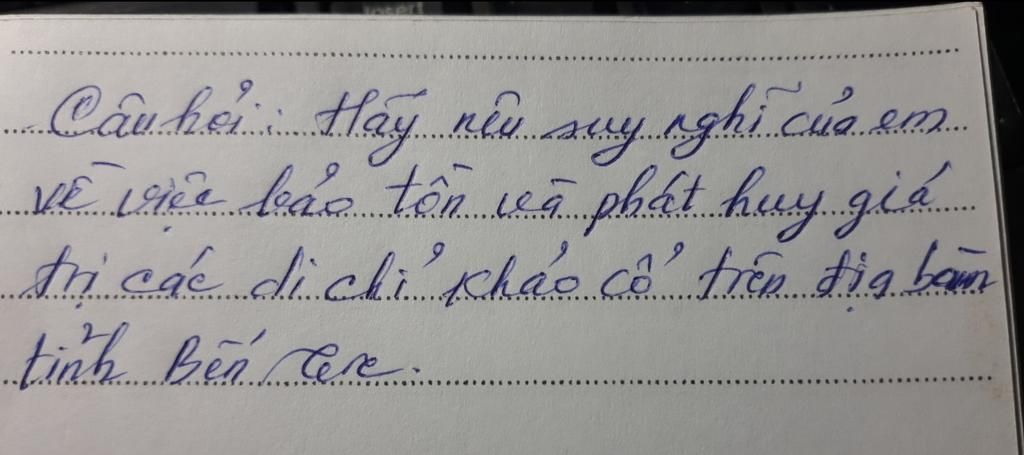 Câu hỏi: Hãy nêu suy nghĩ của em
về việc bảo tồn và phát huy giá
trị các di chỉ khảo cổ trên địa bàn
tỉnh Bến Tre.